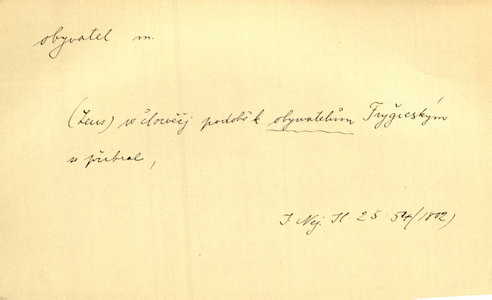 obyvatel m.
(Zeus) w člowěčj podobě k obywatelům Fryžickým
se přibral,
J. Nej. II 25. 54/1802)